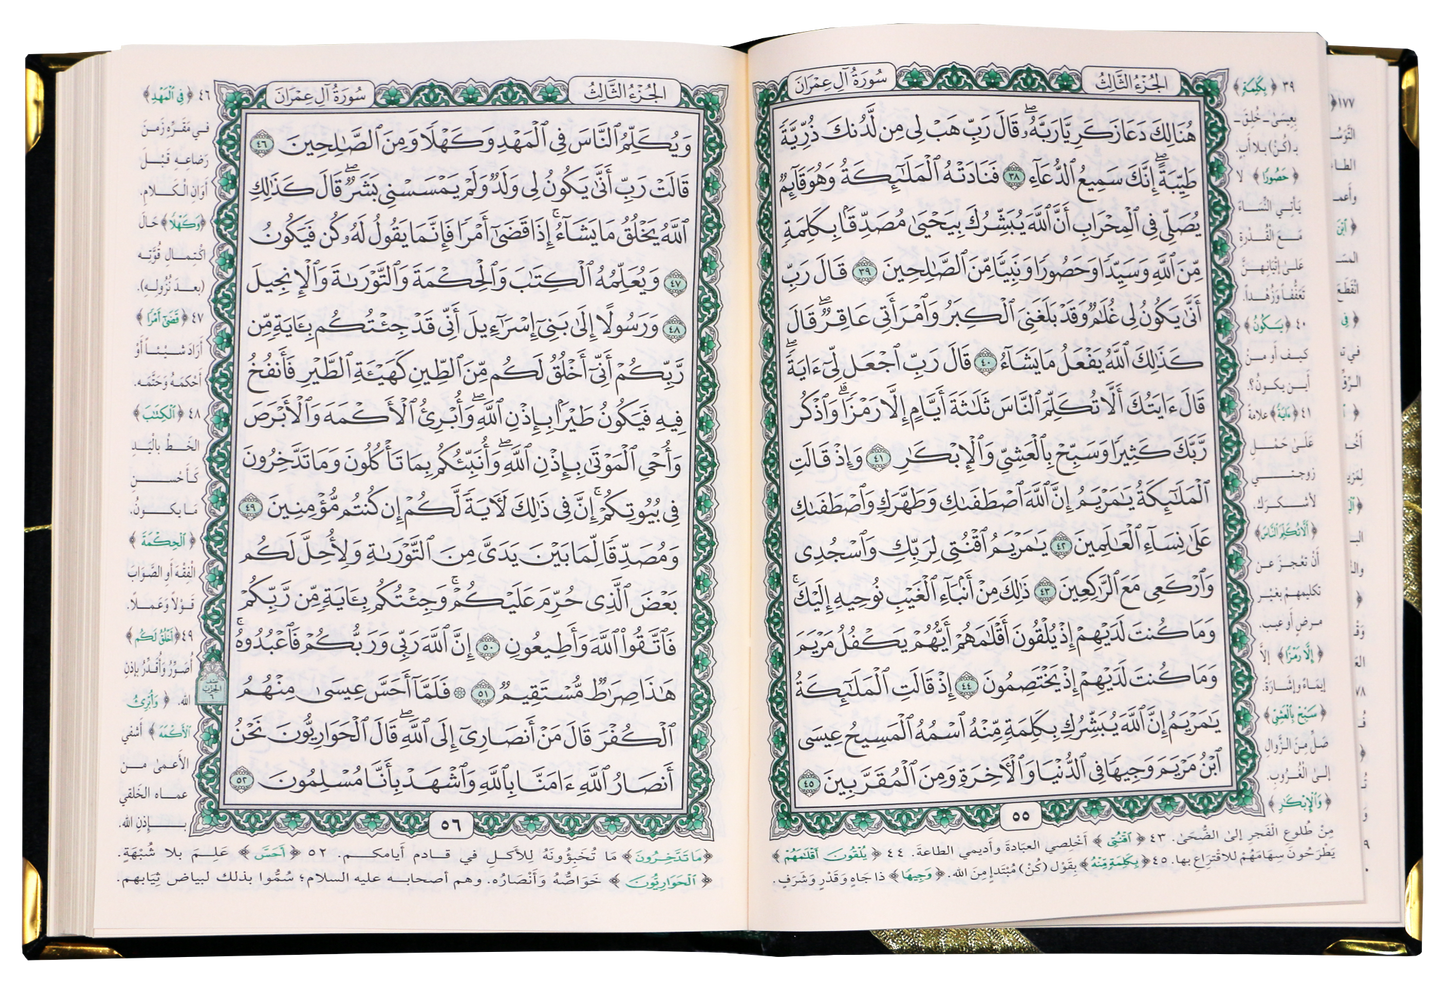 الجزء الثالث
سورة آل عمران
هُنَالِكَ دَعَا زَكَرِيَّا رَبَّهُۥۖ قَالَ رَبِّ هَبْ لِى مِن لَّدُنكَ ذُرِّيَّةً
طَيِّبَةًۖ إِنَّكَ سَمِيعُ ٱلدُّعَآءِ ٣٨ فَنَادَتْهُ ٱلْمَلَٰٓئِكَةُ وَهُوَ قَآئِمٌ
يُصَلِّى فِى ٱلْمِحْرَابِ أَنَّ ٱللَّهَ يُبَشِّرُكَ بِيَحْيَىٰ مُصَدِّقًۢا بِكَلِمَةٍ
مِّنَ ٱللَّهِ وَسَيِّدًا وَحَصُورًا وَنَبِيًّا مِّنَ ٱلصَّٰلِحِينَ ٣٩ قَالَ رَبِّ
أَنَّىٰ يَكُونُ لِى غُلَٰمٌ وَقَدْ بَلَغَنِىَ ٱلْكِبَرُ وَٱمْرَأَتِى عَاقِرٌۖ قَالَ
كَذَٰلِكَ ٱللَّهُ يَفْعَلُ مَا يَشَآءُ ٤٠ قَالَ رَبِّ ٱجْعَل لِّىٓ ءَايَةًۖ
قَالَ ءَايَتُكَ أَلَّا تُكَلِّمَ ٱلنَّاسَ ثَلَٰثَةَ أَيَّامٍ إِلَّا رَمْزًاۗ وَٱذْكُر
رَّبَّكَ كَثِيرًا وَسَبِّحْ بِٱلْعَشِىِّ وَٱلْإِبْكَٰرِ ٤١ وَإِذْ قَالَتِ
ٱلْمَلَٰٓئِكَةُ يَٰمَرْيَمُ إِنَّ ٱللَّهَ ٱصْطَفَىٰكِ وَطَهَّرَكِ وَٱصْطَفَىٰكِ
عَلَىٰ نِسَآءِ ٱلْعَٰلَمِينَ ٤٢ يَٰمَرْيَمُ ٱقْنُتِى لِرَبِّكِ وَٱسْجُدِى
وَٱرْكَعِى مَعَ ٱلرَّٰكِعِينَ ٤٣ ذَٰلِكَ مِنْ أَنۢبَآءِ ٱلْغَيْبِ نُوحِيهِ إِلَيْكَۚ
وَمَا كُنتَ لَدَيْهِمْ إِذْ يُلْقُونَ أَقْلَٰمَهُمْ أَيُّهُمْ يَكْفُلُ مَرْيَمَ
وَمَا كُنتَ لَدَيْهِمْ إِذْ يَخْتَصِمُونَ ٤٤ إِذْ قَالَتِ ٱلْمَلَٰٓئِكَةُ
يَٰمَرْيَمُ إِنَّ ٱللَّهَ يُبَشِّرُكِ بِكَلِمَةٍ مِّنْهُ ٱسْمُهُ ٱلْمَسِيحُ عِيسَى
ٱبْنُ مَرْيَمَ وَجِيهًا فِى ٱلدُّنْيَا وَٱلْءَاخِرَةِ وَمِنَ ٱلْمُقَرَّبِينَ ٤٥
٥٥
٣٩ ﴿بِكَلِمَةٍ﴾
بِعِيسَىٰ - خُلِقَ -
بـ (كُنْ) بلا أبٍ.
﴿حَصُورًا﴾ لا
يَأتِي النِّسَاءَ
مَعَ القُدْرَةِ
عَلَىٰ إتْيَانِهِنَّ
تَعَفُّفًا وَزُهْدًا.
٤٠ ﴿يَكُونُ﴾
كيف أو من
أين يكونُ؟.
٤١ ﴿ءَايَةً﴾ علامةً
عَلَىٰ حَمْلِ
زوجتي
لأشكرك.
﴿أَلَّا تُكَلِّمَ النَّاسَ﴾
أنْ تعْجزَ عن
تكليمهمْ بغَيْرِ
مرضٍ أو عيبٍ.
﴿إِلَّا رَمْزًا﴾ إلَّا
إيماءً وإشارَةً.
﴿سَبِّحْ بِالْعَشِيِّ﴾
صَلِّ مِنَ الزَّوالِ
إلىٰ الغُروبِ.
﴿وَالْإِبْكَارِ﴾
مِنْ طُلُوعِ الفَجرِ إلىٰ الضُّحَىٰ. ٤٣ ﴿اقْنُتِي﴾ أخْلِصِي العِبَادَةَ وأديمي الطاعةَ. ٤٤ ﴿يُلْقُونَ أَقْلَٰمَهُمْ﴾
يَطرَحُونَ سِهَامَهُمْ للاقتِراعِ بها. ٤٥ ﴿بِكَلِمَةٍ مِنْهُ﴾ بِقَوْلِ (كُنْ) مُبْتَدإٍ مِنَ الله. ﴿وَجِيهًا﴾ ذا جَاهٍ وَقَدْرٍ وَشَرَفٍ.
الجزء الثالث
سورة آل عمران
وَيُكَلِّمُ ٱلنَّاسَ فِى ٱلْمَهْدِ وَكَهْلًا وَمِنَ ٱلصَّٰلِحِينَ ٤٦
قَالَتْ رَبِّ أَنَّىٰ يَكُونُ لِى وَلَدٌ وَلَمْ يَمْسَسْنِى بَشَرٌۖ قَالَ كَذَٰلِكِ
ٱللَّهُ يَخْلُقُ مَا يَشَآءُۚ إِذَا قَضَىٰٓ أَمْرًا فَإِنَّمَا يَقُولُ لَهُۥ كُن فَيَكُونُ
٤٧ وَيُعَلِّمُهُ ٱلْكِتَٰبَ وَٱلْحِكْمَةَ وَٱلتَّوْرَىٰةَ وَٱلْإِنجِيلَ
٤٨ وَرَسُولًا إِلَىٰ بَنِىٓ إِسْرَٰٓءِيلَ أَنِّى قَدْ جِئْتُكُم بِـَٔايَةٍ مِّن
رَّبِّكُمْ أَنِّىٓ أَخْلُقُ لَكُم مِّنَ ٱلطِّينِ كَهَيْـَٔةِ ٱلطَّيْرِ فَأَنفُخُ
فِيهِ فَيَكُونُ طَيْرًۢا بِإِذْنِ ٱللَّهِۖ وَأُبْرِئُ ٱلْأَكْمَهَ وَٱلْأَبْرَصَ
وَأُحْىِ ٱلْمَوْتَىٰ بِإِذْنِ ٱللَّهِۖ وَأُنَبِّئُكُم بِمَا تَأْكُلُونَ وَمَا تَدَّخِرُونَ
فِى بُيُوتِكُمْۚ إِنَّ فِى ذَٰلِكَ لَءَايَةً لَّكُمْ إِن كُنتُم مُّؤْمِنِينَ ٤٩
وَمُصَدِّقًا لِّمَا بَيْنَ يَدَىَّ مِنَ ٱلتَّوْرَىٰةِ وَلِأُحِلَّ لَكُم
بَعْضَ ٱلَّذِى حُرِّمَ عَلَيْكُمْۚ وَجِئْتُكُم بِـَٔايَةٍ مِّن رَّبِّكُمْ
فَٱتَّقُوا۟ ٱللَّهَ وَأَطِيعُونِ ٥٠ إِنَّ ٱللَّهَ رَبِّى وَرَبُّكُمْ فَٱعْبُدُوهُۗ
هَٰذَا صِرَٰطٌ مُّسْتَقِيمٌ ٥١ ۞ فَلَمَّآ أَحَسَّ عِيسَىٰ مِنْهُمُ
ٱلْكُفْرَ قَالَ مَنْ أَنصَارِىٓ إِلَى ٱللَّهِۖ قَالَ ٱلْحَوَارِيُّونَ نَحْنُ
أَنصَارُ ٱللَّهِ ءَامَنَّا بِٱللَّهِ وَٱشْهَدْ بِأَنَّا مُسْلِمُونَ ٥٢
٥٦
الحزب
٦
٤٦ ﴿فِي الْمَهْدِ﴾
في مَقَرِّهِ زَمنَ
رَضاعهِ قَبْلَ
أوَانِ الْكَلامِ.
﴿وَكَهْلًا﴾ حَالَ
اكْتِمالِ قُوَّتِه
(بعدَ نُزُولهِ).
٤٧ ﴿قَضَىٰ أَمْرًا﴾
أرَادَ شَيْئاً أَوْ
أحْكمَهُ وَحَتَّمَه.
٤٨ ﴿الْكِتَٰبَ﴾
الخَطَّ بالْيَدِ
كَأحْسنِ
مَا يكونُ.
﴿الْحِكْمَةَ﴾
الْفِقْهَ أو الصَّوَابَ
قَوْلاً وَعَملاً.
٤٩ ﴿أَخْلُقُ لَكُم﴾
أُصَوِّرُ وأُقَدِّرُ بإذنِ
الله. ﴿وَأُبْرِئُ
الْأَكْمَهَ﴾ أشْفي
الأعمىٰ من
عماه الخَلقي
بـإذنِ الله.
﴿مَا تَدَّخِرُونَ﴾ مَا تُخَبِّؤُونَهُ لِلأكلِ في قادم أيامكم. ٥٢ ﴿أَحَسَّ﴾ عَلِمَ بلا شُبْهَةٍ.
﴿الْحَوَارِيُّونَ﴾ خَوَاصُّهُ وَأَنْصَارُه. وهم أصحابه عليه السلام؛ سُمُّوا بذلك لبياض ثِيَابهم.